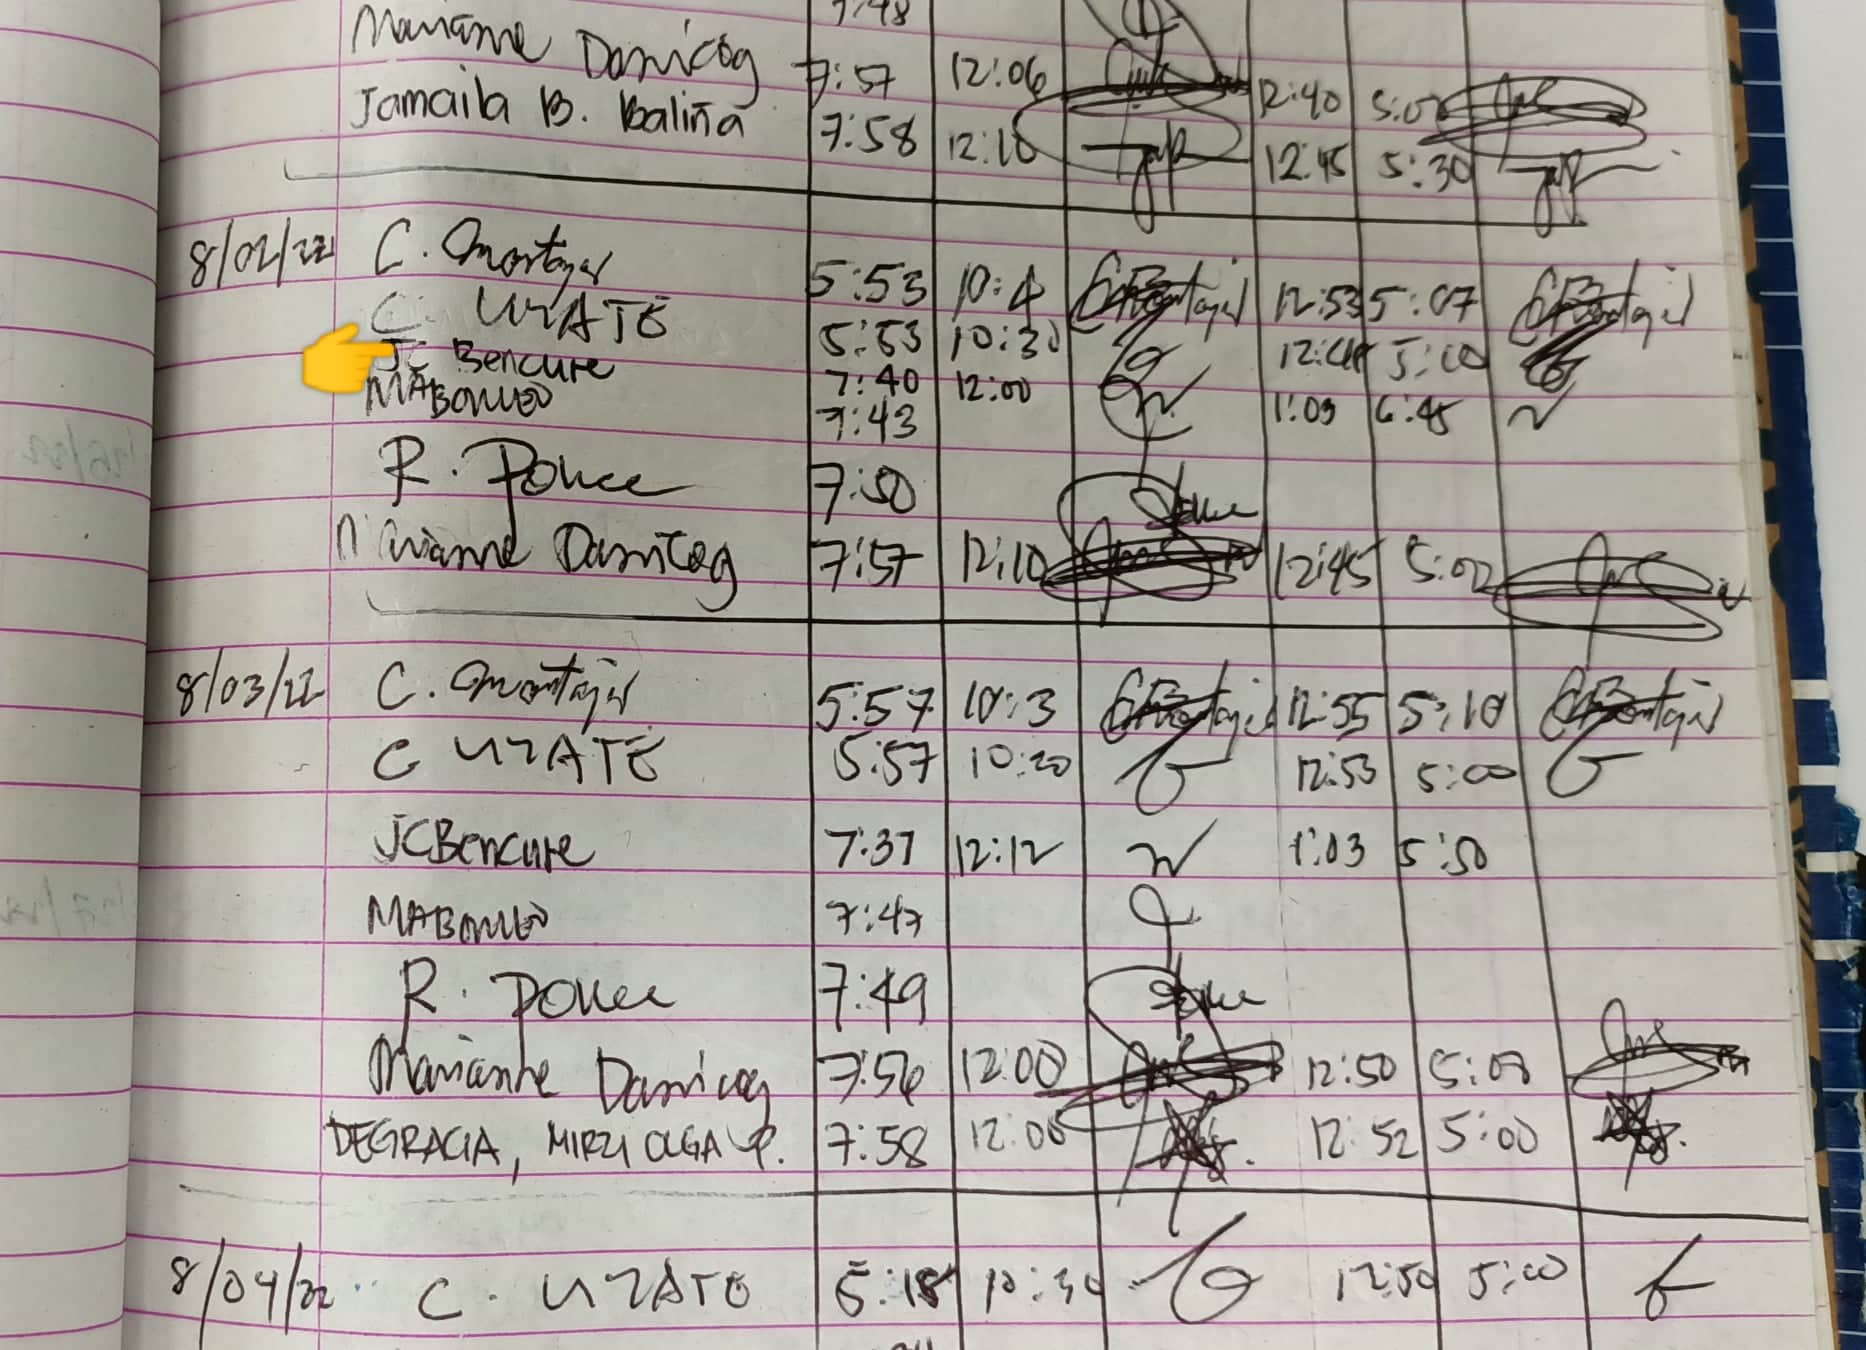 7:48
Marianne Damicog 7:57 12:06 12:40 5:02
Jamaila B. Baliña 7:58 12:10 12:45 5:30
8/02/22 C. Montajes 5:53 10:4 12:53 5:07
C. UZATE 5:53 10:30 5:00
JC Bencure 7:40 12:00 1:03 6:45
7:43
R. Ponce 7:50
Marianne Damicog 7:57 12:10 12:45 5:02
8/03/22 C. Montajes 5:57 10:3 12:55 5:10
C UZATE 5:57 10:20 12:53 5:00
JCBencure 7:37 12:12 1:03 5:50
7:47
R. Ponce 7:49
Marianne Damicog 7:56 12:00 12:50 5:08
DEGRACIA, MIRZI OLGA P. 7:58 12:00 12:52 5:00
8/04/22 C. UZATE 5:18 10:30 12:50 5:00